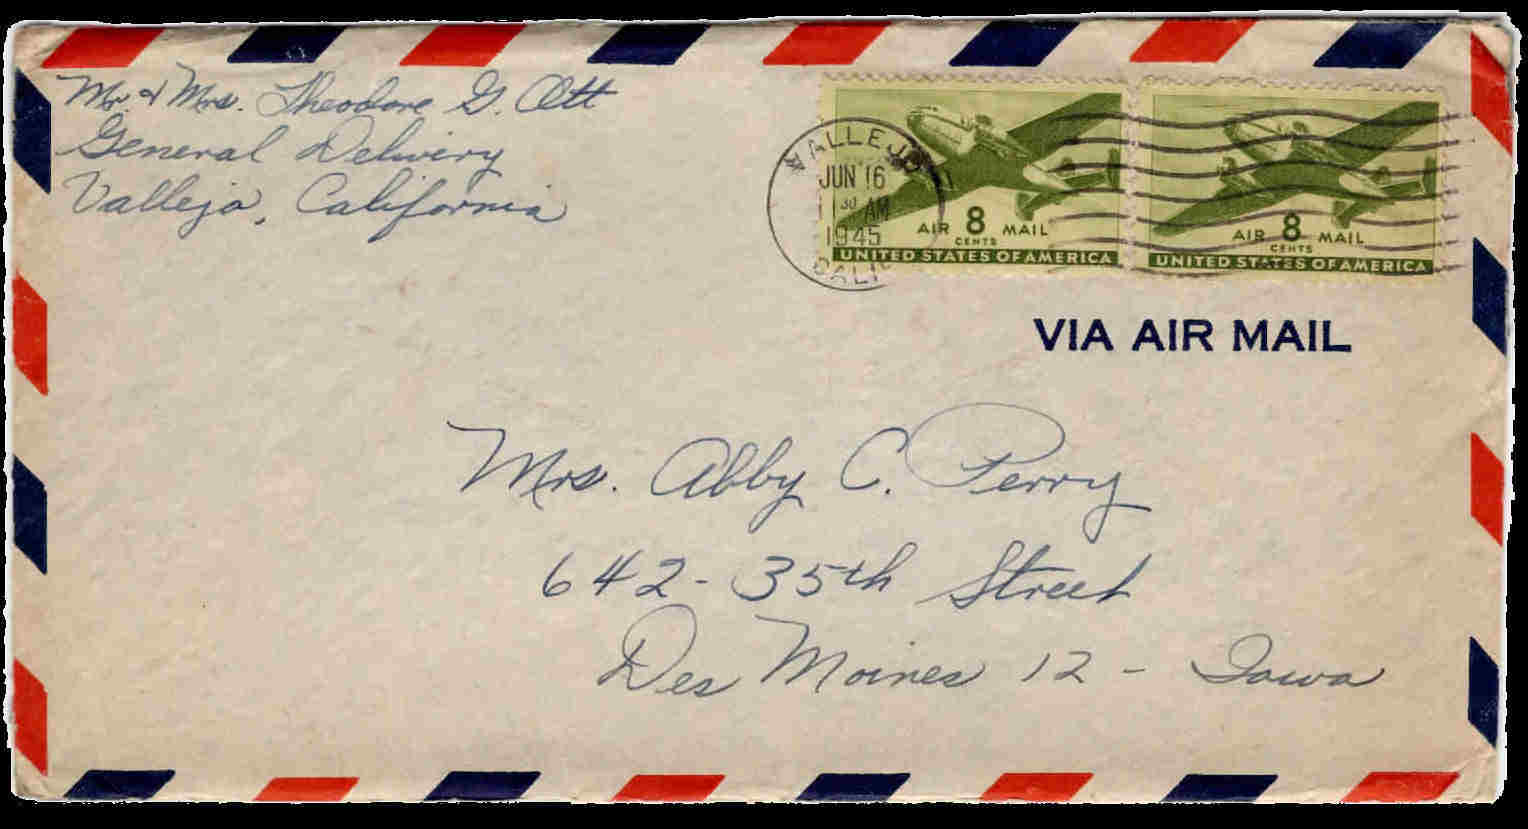 Mr. & Mrs. Theodore G. Ott
General Delivery
Vallejo, California
VALLEJO
JUN 16
30 AM
1945
CALIF
AIR 8 MAIL
CENTS
UNITED STATES OF AMERICA
AIR 8 MAIL
CENTS
UNITED STATES OF AMERICA
VIA AIR MAIL
Mrs. Abby C. Perry
642-35th Street
Des Moines 12 - Iowa